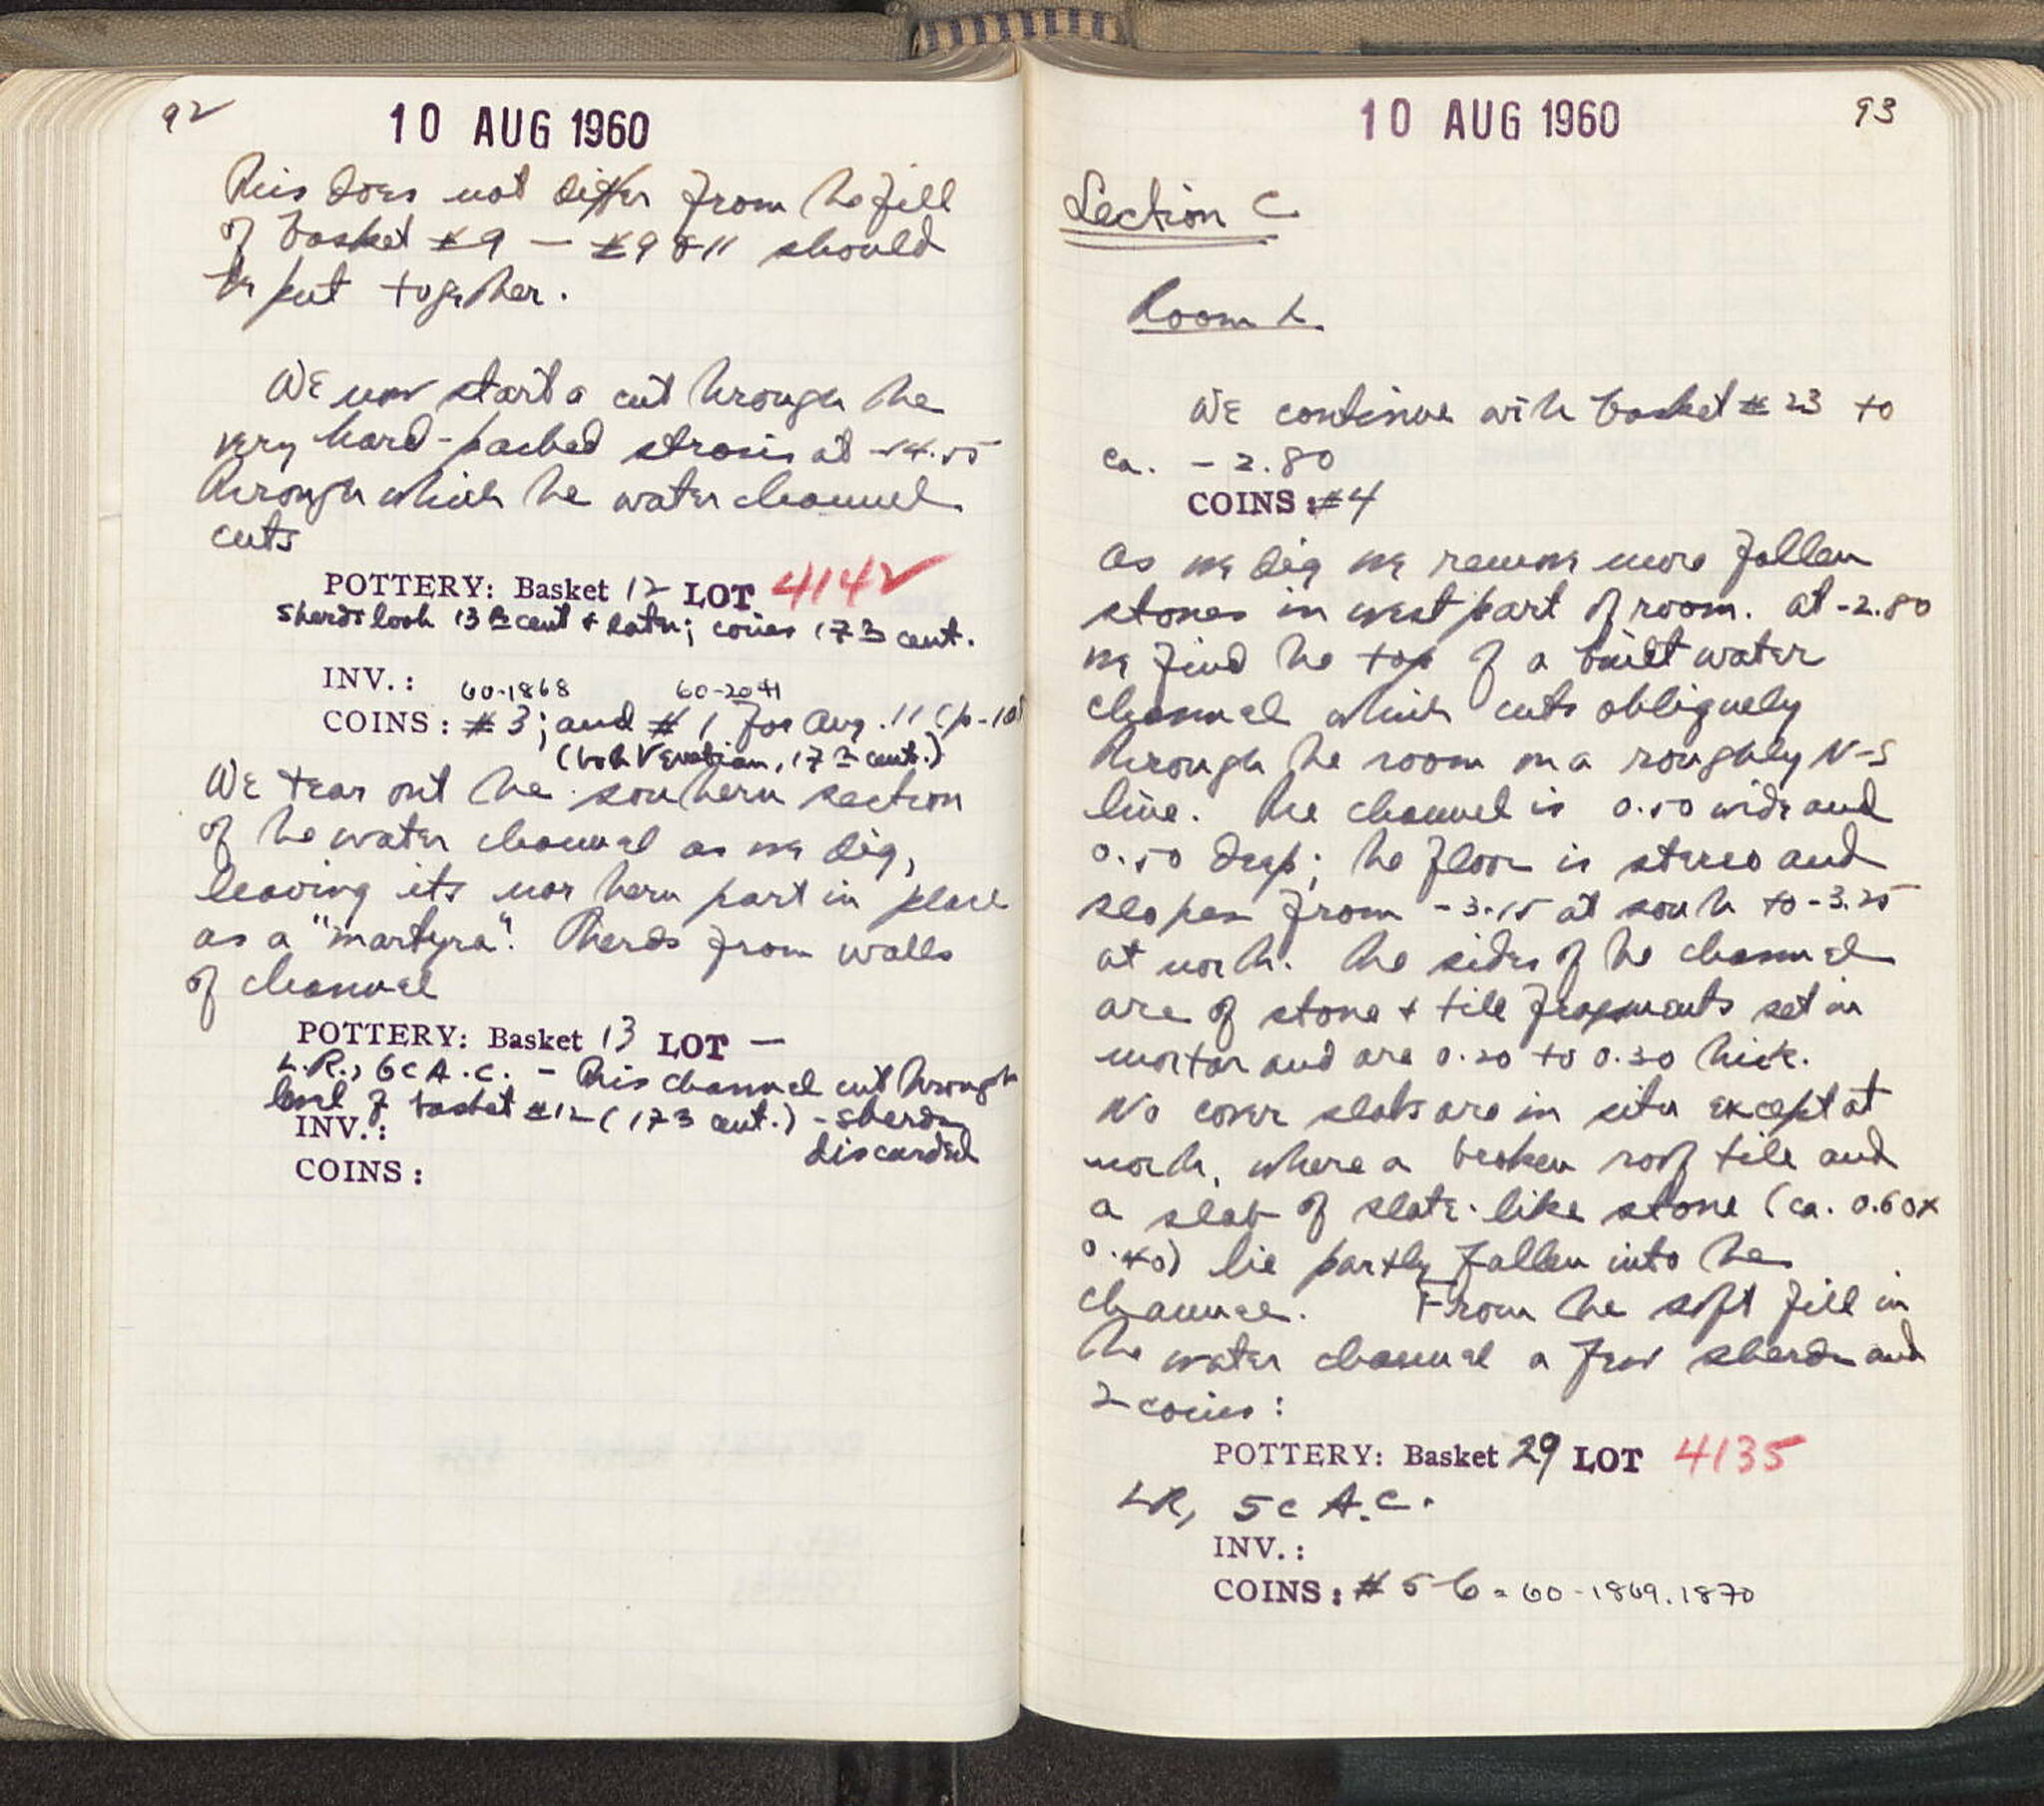 92
10 AUG 1960
This does not differ from the fill
of basket #9 — #9 & 11 should
be put together.
We now start a cut through the
very hard-packed strosis at -4.55
through which the water channel
cuts
POTTERY: Basket 12 LOT 4142
Sherds look 13th cent & later; coins 17th cent.
INV.:
60-1868 60-2041
COINS: #3; and #1 for Aug. 11 (p.
(both Venetian, 17th cent.)
We tear out the southern section
of the water channel as we dig,
leaving its northern part in place
as a "martyra". Sherds from walls
of channel
POTTERY: Basket 13 LOT —
L.R., 6c A.C. - This channel cut through
level of basket #12 (17th cent.) - sherds
discarded
INV.:
COINS:
93
10 AUG 1960
Section C
Room L
We continue with basket #23 to
ca. -2.80
COINS: #4
As we dig we remove more fallen
stones in west part of room. At -2.80
we find the top of a built water
channel which cuts obliquely
through the room on a roughly N-S
line. The channel is 0.50 wide and
0.50 deep; the floor is stereo and
slopes from -3.15 at south to -3.25
at north. The sides of the channel
are of stone & tile fragments set in
mortar and are 0.20 to 0.30 thick.
No cover slabs are in situ except at
north, where a broken roof tile and
a slab of slate-like stone (ca. 0.60x
0.40) lie partly fallen into the
channel. From the soft fill in
the water channel a few sherds and
2 coins:
POTTERY: Basket 29 LOT 4135
LR, 5c A.C.
INV.:
COINS: #5-6 = 60-1869.1870